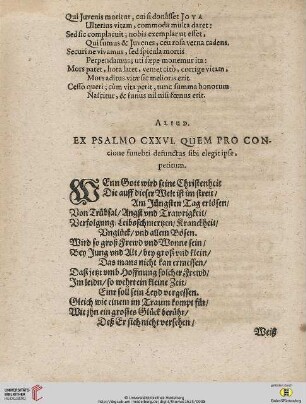 Qui Juvenis moritur, cui si donâsset JOVA
Ulterius vitam, commoda multa daret:
Sed sic complacuit, nobis exemplar ut esset,
Qui sumus & Juvenes, ceu rosa verna cadens.
Securi ne vivamus, sed spicula mortis
Perpendamus, uti sæpe monemur ita:
Mors patet, hora latet, veniet citò, corrige vitam,
Mors aditus vitæ sic melioris erit.
Cesso queri; cùm vita perit, tunc summa bonorum
Nascitur, & funus nil nisi fœnus erit.
ALIUD.
EX PSALMO CXXVI. QUEM PRO CON-
cione funebri defunctus sibi elegit ipse,
petitum.
WEnn Gott wird seine Christenheit
Die auff dieser Welt ist im streit/
Am Jüngsten Tag erlösen/
Von Trübsal/ Angst vnd Trawrigkeit/
Verfolgung/ Leibsschmertzen/ Kranckheit/
Vnglück/ vnd allem Bösen.
Wird so groß Frewd vnd Wonne sein/
Bey Jung vnd Alt/ bey groß vnd klein/
Das mans nicht kan ermessen/
Daß jetz vmb Hoffnung solcher Frewd/
Im leiden/ so wehrt ein kleine Zeit/
Eine soll sein Leyd vergessen.
Gleich wie einem im Traum kompt für/
Wie jhn ein grosses Glück berühr/
Deß Er sich nicht versehen/
Weiß
UNIVERSITÄTS-
BIBLIOTHEK
HEIDELBERG
© Universitätsbibliothek Heidelberg